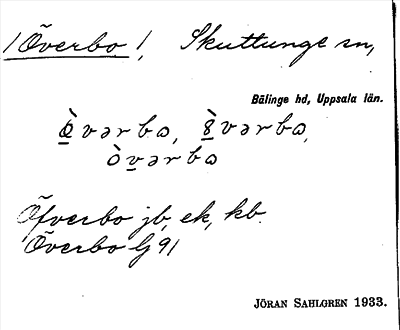 /Överbo/, Skuttunge sn,
Bälinge hd, Uppsala län.
Öfverbo jb, ek, kb.
Överbo Gj 91
JÖRAN SAHLGREN 1933.